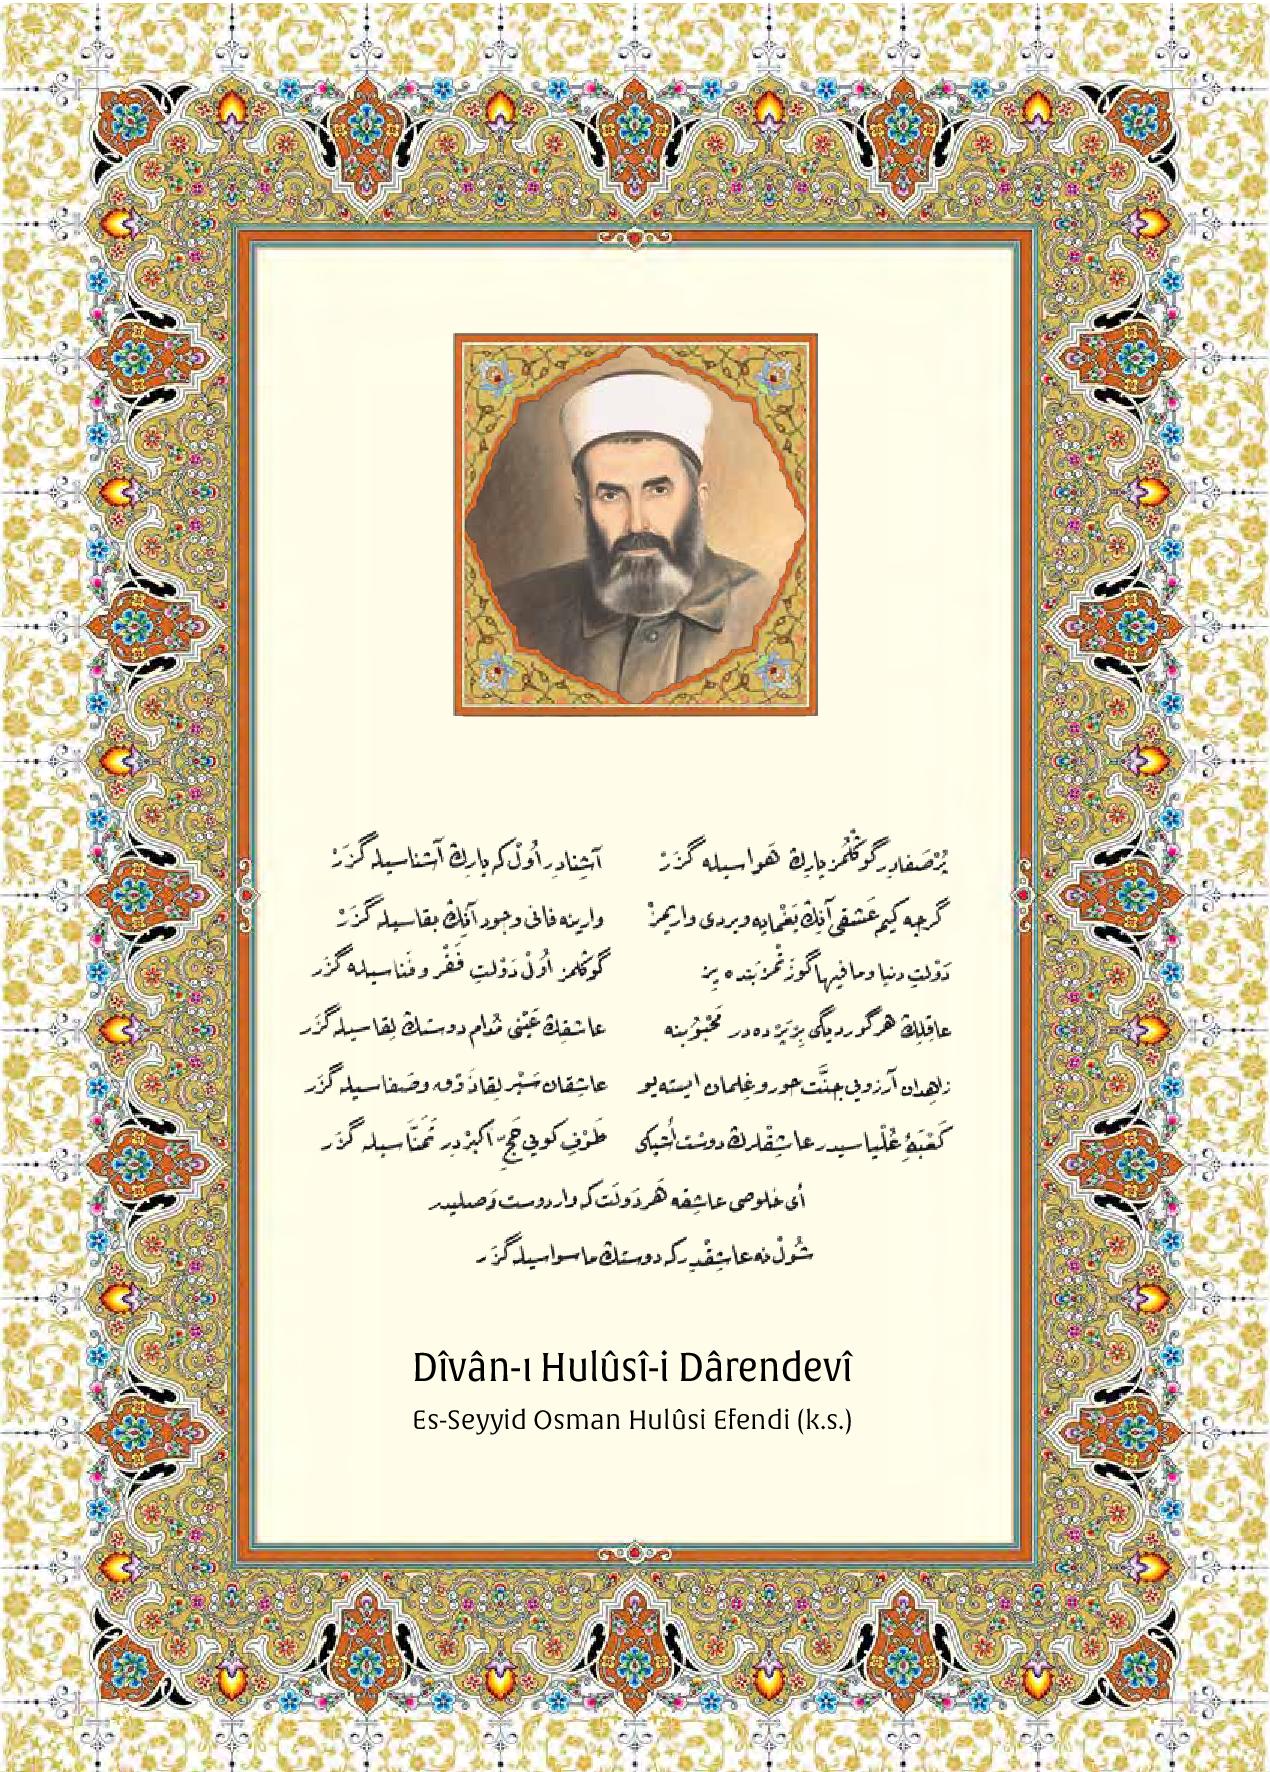 پُرْصَفادِر گوگْلُمز يارِڭ هَواسيله گَزَرْ آشِنادِر اُولْ كه يارِڭ آشناسيله گَزَرْ
گرچه كيم عَشقى آنِڭ يَغْمايه ويردى واريمزْ وارينه فانى وجود آنِڭ بقاسيله گَزَرْ
دَوْلتِ دنيا وما فيها گوزَتْمز بَنده يِز گوكْلمز اُولْ دَوْلتِ فَقْر و فَناسيله گَزَر
عاقِلِڭ هر گوردیگى بِرْ پَرْده در مَحْبُوبنه عاشقِڭ عَيْنى مُدام دوستڭ لِقاسيله گَزَر
زاهِدان آرزویِ جنَّت حور و غِلمان ايسته يو عاشِقان سَيْرِ لِقا ذَوْق وصَفاسيله گَزَر
كَعْبَۀِ عُلْياسيدر عاشِقْلرڭ دوسْت اِشيكى طَوْفِ كویی حَجِّ اَكبَرْدِر تَمَنّاسيله گَزَر
اَى خلوصى عاشِقه هَر دَولَت كه وار دوست وَصليدر
شُولْ نه عاشِقْدِر كه دوستڭ ماسواسيله گَزَر
Dîvân-ı Hulûsî-i Dârendevî
Es-Seyyid Osman Hulûsi Efendi (k.s.)